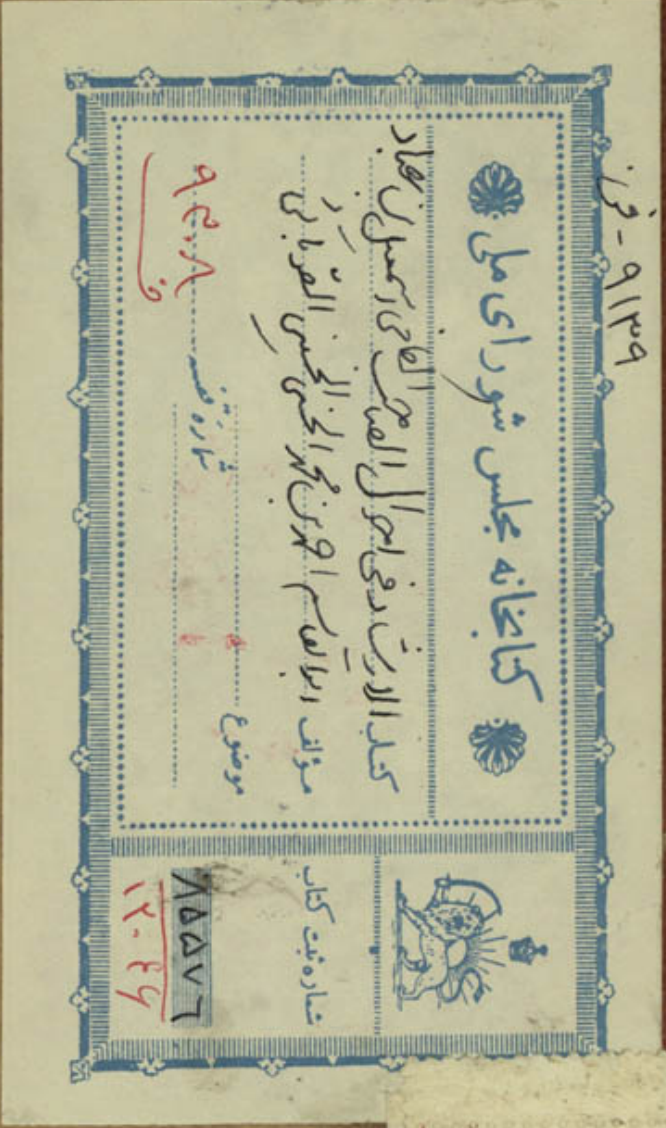 ۹۱۳۹ -
کتابخانه مجلس شورای ملی
کتاب الارشاد فی احوال الصاحب الکافی اسمعیل بن عباد
مؤلف ابوالقاسم احمد بن محمد الحسنی الحسینی القوبائی
موضوع
شماره قفسه ۹۳۰۸
شماره ثبت کتاب
۸۵۵۷۶
۱۲۰۴۶